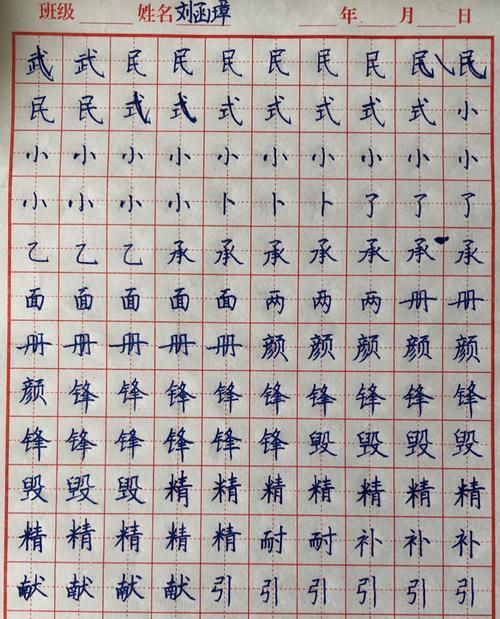 班级 姓名 刘函璋 年 月 日
武 武 民 民 民 民 民 民 民 民
民 民 式 式 式 式 式 式 式 小
小 小 小 小 小 小 小 小 小 小
小 小 小 小 卜 卜 卜 了 了 了
乙 乙 乙 承 承 承 承 承 承 承
面 面 面 面 面 两 两 两 册 册
册 册 册 册 册 颜 颜 颜 颜 颜
颜 锋 锋 锋 锋 锋 锋 锋 锋 锋
锋 锋 锋 锋 锋 锋 毁 毁 毁 毁
毁 毁 毁 精 精 精 精 精 精 精
精 精 精 精 精 耐 耐 补 补 补
献 献 献 献 引 引 引 引 引 引